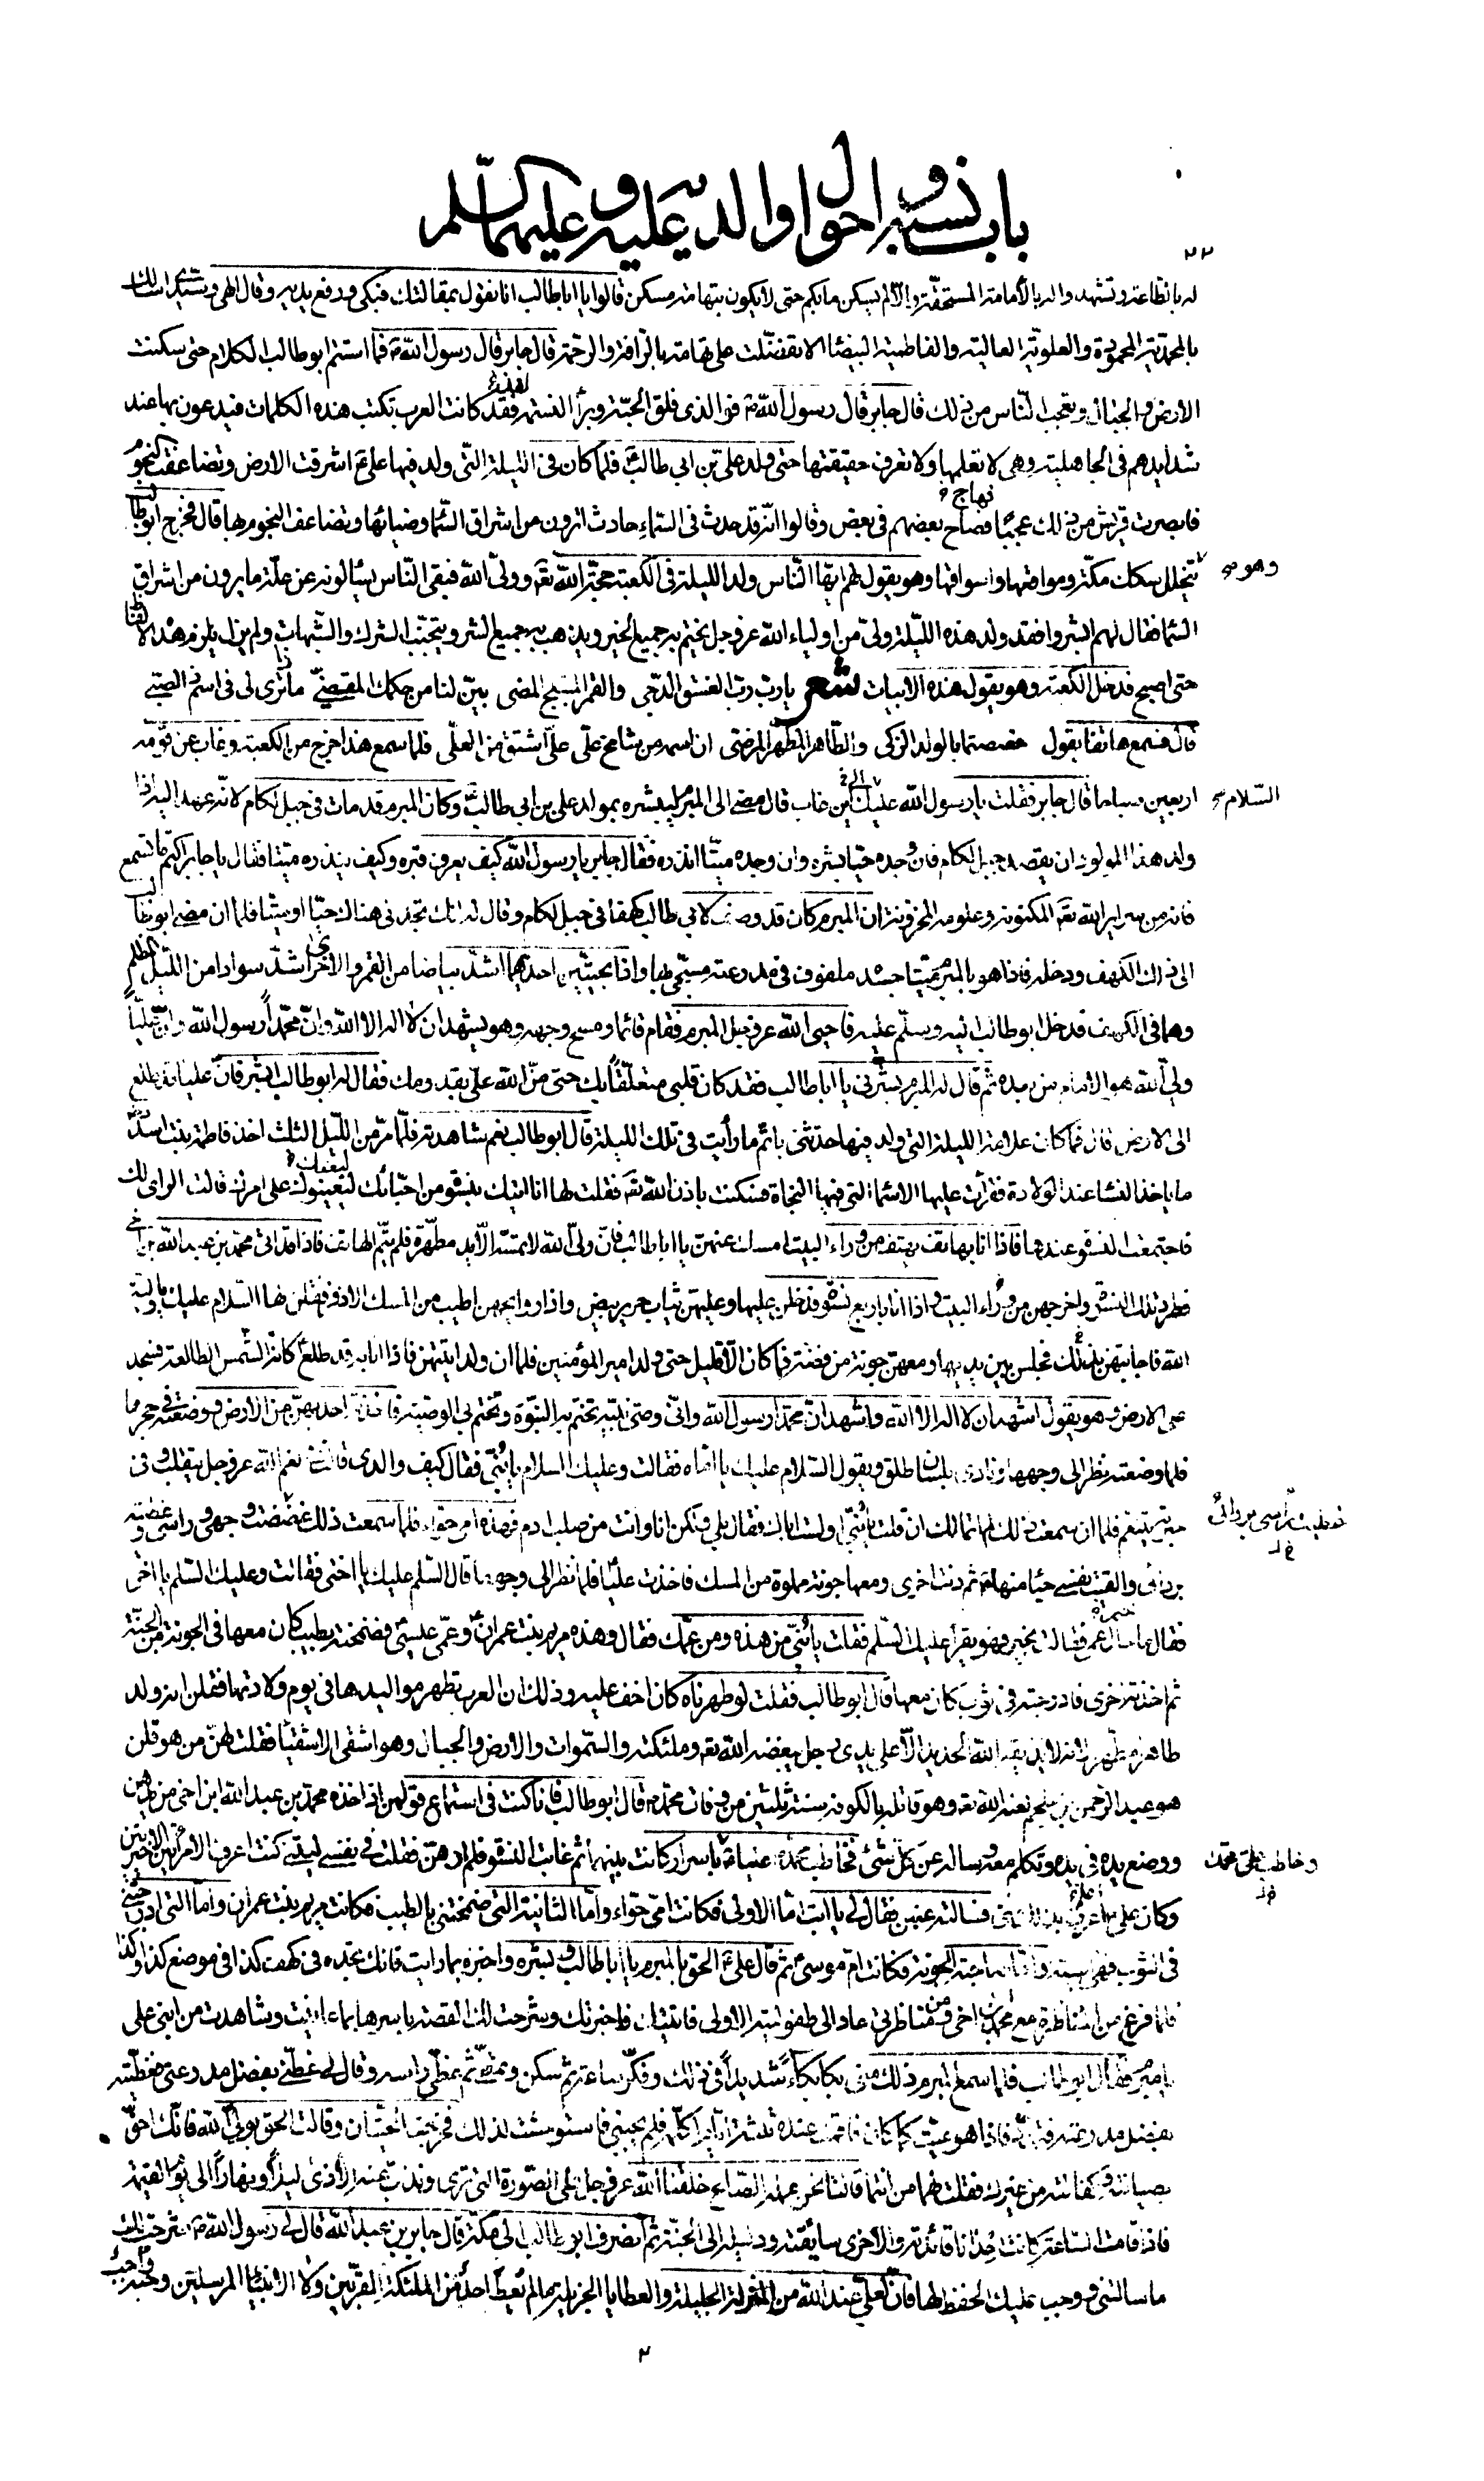 باب نسبه و احوال والديه عليه و عليهما السلم
٢٣
له بالطاعة وتشهد واله بالأمامة المستحقة والا لم يسكن ما بكم حتى لا يكون بتهامة مسكن قالوا يا ابا طالب انا نقول بمقالتك فبكى ورفع يديه وقال الهى وسيدى اسالك
بالمحمدية المحمودة والعلوية العالية والفاطمية البيضاء الا تفضلت على تهامة بالرافة والرحمة قال جابر قال رسول الله ص فما استتم ابو طالب الكلام حتى سكنت
الارض والجبال وتعجب الناس من ذلك قال جابر قال رسول الله ص فوالذى فلق الحبة وبرأ النسمة فقد كانت العرب تكتب هذه الكلمات فيدعون بها عند
شدايدهم فى الجاهلية وهى لا تعلمها ولا تعرف حقيقتها حتى ولد على بن ابى طالب ع فلما كان فى الليلة التى ولد فيها على ع اشرقت الارض وتضاعفت النجوم
فابصرت قريش من ذلك عجبا فصاح بعضهم فى بعض وقالوا انه قد حدث فى السماء حادث اترون من اشراق السماء وضيائها وتضاعف النجوم بها قال فخرج ابو طالب
فهاج
وهو
يتخلل سكك مكة ومواضعها واسواقها وهو يقول لهم ايها الناس ولد الليلة فى الكعبة حجة الله تعه وولى الله فبقى الناس يسئالونه عن علة ما يرون من اشراق
السماء فقال لهم ابشروا فقد ولد هذه الليلة ولى من اولياء الله عز وجل يختم به جميع الخير ويذهب به جميع الشر ويتجنب الشرك والشبهات ولم يزل يلزم هذه الالفاظ
حتى اصبح فدخل الكعبة وهو يقول هذه الابيات شعر يا رب رب الغسق الدجى والقمر المبتلج المضى بين لنا من حكمك المقضى ماذا ترى لى فى اسم ذا الصبى
قال فسمع هاتفا يقول خصصتما بالولد الزكى والطاهر المطهر المرضى ان اسمه من شامخ على على اشتق من العلى فلما سمع هذا خرج من الكعبة وغاب عن قومه
السلام
اربعين صباحا قال جابر فقلت يا رسول الله عليك الى اين غاب قال مضى الى المبرم ليبشره بمولد على بن ابى طالب ع وكان المبرم قد مات فى جبل لكام لانه عهد اليه اذا
ولد هذا المولود ان يقصد جبل لكام فان وجده حيا بشره وان وجده ميتا انذره فقال جابر يا رسول الله كيف يعرف قبره وكيف ينذره ميتا فقال يا جابر اكتم ما تسمع
فانه من سراير الله تعه المكنونة وعلومه المخزونة ان المبرم كان قد وصف لابى طالب كهفا فى جبل لكام وقال له انك تجدنى هناك حيا او ميتا فلما ان مضى ابو طالب
الى ذلك الكهف ودخله فاذا هو بالمبرم ميتا جسده ملفوف فى مدرعته مسجى بها واذا بحيتين احديهما اشد بياضا من القمر والاخرى اشد سوادا من الليل المظلم
وهما فى الكهف فدخل ابو طالب اليه وسلم عليه فاحيى الله عز وجل المبرم فقام قائما ومسح وجهه وهو يشهد ان لا اله الا الله وان محمدا رسول الله وان عليا
ولى الله هو الامام من بعده ثم قال له المبرم بشرنى يا ابا طالب فقد كان قلبى متعلقا بك حتى من الله على بقدومك فقال له ابو طالب ابشر فان عليا قد طلع
الى الارض قال فما كان علامة الليلة التى ولد فيها حدثنى باتم ما رأيت فى تلك الليلة قال ابو طالب نعم شاهدته فلما مر من الليل الثلث اخذ فاطمة بنت اسد
ما ياخذ النساء عند الولادة فقرأت عليها الاسماء التى فيها النجاة فسكنت باذن الله تعه فقلت لها انا اتيك بنسوة من احبائك ليعينوك على امرك قالت الراى لك
فاجتمعت النسوة عندها فاذا انا بهاتف يهتف من وراء البيت امسك عنهن يا ابا طالب فان ولى الله لا تمسه الا يد مطهرة فلم يتم الهاتف فاذا قد اتى محمد بن عبد الله بن اخى
فطرد تلك النسوة واخرجهن من وراء البيت واذا انا باربع نسوة فدخلن عليها وعليهن ثياب حرير بيض واذا روايحهن اطيب من المسك الاذفر فقلن لها السلام عليك يا ولية
الله فاجابتهن بذلك فجلسن بين يديها ومعهن جونة من فضة فما كان الا قليل حتى ولد امير المؤمنين فلما ان ولد اتيتهن فاذا انا به قد طلع كانه الشمس الطالعة فسجد
على الارض وهو يقول اشهد ان لا اله الا الله واشهد ان محمدا رسول الله وانى وصى نبيه تختم به النبوة وتختم بى الوصية فاخذته احديهن من الارض ووضعته فى حجرها
فلما وضعته نظر الى وجهها ونادى بلسان طلق ويقول السلام عليك يا اماه فقالت وعليك السلام يا بنى فقال كيف والدى قالت فى نعم الله عز وجل يتقلب وفى
خيرته يتنعم فلما ان سمعت ذلك لم اتمالك ان قلت يا بنى اولست اباك فقال بلى ولكن انا وانت من صلب ادم فهذه امى حواء فلما سمعت ذلك غضضت وجهى وراسى وغطيته
فغطيت راسى بردائى
خ ل
بردائى والقيت نفسى حياء منها ثم دنت اخرى ومعها جونة مملوة من المسك فاخذت عليا فلما نظر الى وجهها قال السلم عليك يا اختى فقالت وعليك السلم يا اخى
فقال ما حال عمى فقالت بخير وهو يقرأ عليك السلم فقلت يا بنى من هذه ومن عمك فقال وهذه مريم بنت عمران وعمى عيسى فضمخته بطيب كان معها فى الجونة من الجنة
ثم اخذته اخرى فادرجته فى ثوب كان معها قال ابو طالب فقلت لو طهرناه كان اخف عليه وذلك ان العرب تطهر مواليدها فى يوم ولادتها فقلن انه ولد
طاهرا مطهرا لانه لا يذيقه الله الحديد الا على يدى رجل يبغضه الله تعه وملئكته والسموات والارض والجبال وهو اشقى الاشقياء فقلت لهن من هو قلن
هو عبد الرحمن بن ملجم لعنه الله تعه وهو قاتله بالكوفة سنة ثلثين من وفات محمد ص قال ابو طالب فانا كنت فى استماع قولهن اذ اخذه محمد بن عبد الله ابن اخى من يدهن
ووضع يده فى يده وتكلم معه وساله عن كل شئ فخاطب محمد ص عليا ع باسرار كانت بينهما ثم غابت النسوة فلم ارهن فقلت فى نفسى ليتنى كنت اعرف الامرأتين الاخيرتين
وخاطب على محمد
خ ل
وكان على اعرف بذلك منى فسالته عنهن فقال لى يا ابت اما الاولى فكانت امى حواء واما الثانية التى ضمختنى بالطيب فكانت مريم بنت عمران واما التى ادرجتنى
فى الثوب فهى اسية واما صاحبة الجونة فكانت ام موسى ثم قال على ع الحق بالمبرم يا ابا طالب وبشره واخبره بما رايت فانك تجده فى كهف كذا فى موضع كذا وكذا
فلما فرغ من المناظرة مع محمد ابن اخى ومن مناظرتى عاد الى طفوليته الاولى فاتيتك فاخبرتك وشرحت لك القصة باسرها بما عاينت وشاهدت من ابنى على
يا مبرم فقال ابو طالب فلما سمع المبرم ذلك منى بكا بكاء شديدا فى ذلك وفكر ساعة ثم سكن وتمطى ثم غطى راسه وقال لى غطنى بفضل مدرعتى فغطيته
بفضل مدرعته فتمدد فاذا هو ميت كما كان فاقمت عنده ثلثة ايام اكلمه فلم يجبنى فاستوحشت لذلك فخرجت الحيتان وقالتا الحق بولى الله فانك احق
بصيانته وكفالته من غيرك فقلت لهما من انتما قالتا نحن عمله الصالح خلقنا الله عز وجل على الصورة التى ترى ونذب عنه الاذى ليلا ونهارا الى يوم القيمة
فاذا قامت الساعة كانت احدانا قائدته والاخرى سائقته ودليله الى الجنة ثم انصرف ابو طالب الى مكة قال جابر بن عبد الله قال لى رسول الله ص شرحت لك
ما سالتنى ووجب عليك الحفظ لها فان لعلى عند الله من المنزلة الجليلة والعطايا الجزيلة ما لم يعط احد من الملئكة المقربين ولا الانبياء المرسلين وحبه واجب
٣